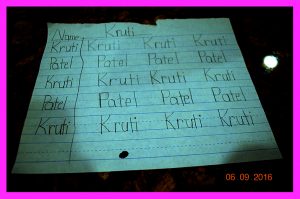 Name Kruti
Kruti Kruti Kruti Kruti
Patel Patel Patel Patel
Kruti Kruti Kruti Kruti
Patel Patel Patel Patel
Kruti Kruti Kruti Kruti
06 09 2016